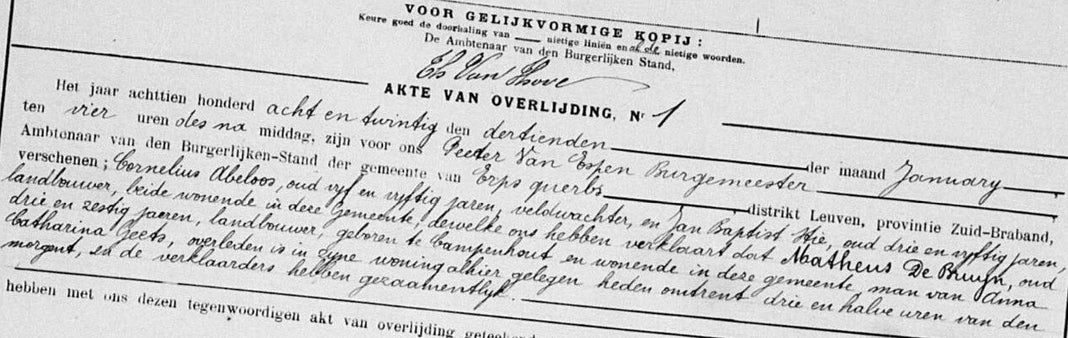 VOOR GELIJKVORMIGE KOPIJ :
Keure goed de doorhaling van nietige liniën en nietige woorden.
De Ambtenaar van den Burgerlijken Stand,
Van Hove
AKTE VAN OVERLIJDING, Nr 1
Het jaar achttien honderd acht en twintig den dertienden der maand January
ten vier uren des na middag, zijn voor ons Peeter Van Espen Burgemeester
Ambtenaar van den Burgerlijken-Stand der gemeente van Erps querbs distrikt Leuven, provintie Zuid-Braband,
verschenen ; Cornelius Abeloos, oud vyf en vyftig jaren, veldwachter, en Jan Baptist Hié, oud drie en vyftig jaren,
landbouwer, beide wonende in deze gemeente, dewelke ons hebben verklaart dat Matheus De Bruyn, oud
drie en zestig jaeren, landbouwer, geboren te Campenhout en wonende in deze gemeente, man van Anna
Catharina Geets, overleden is in zyne woning alhier gelegen heden omtrent drie en halve uren van den
morgent, en de verklaarders hebben gezaamentlyk.
hebben met ons dezen tegenwoordigen akt van overlijding